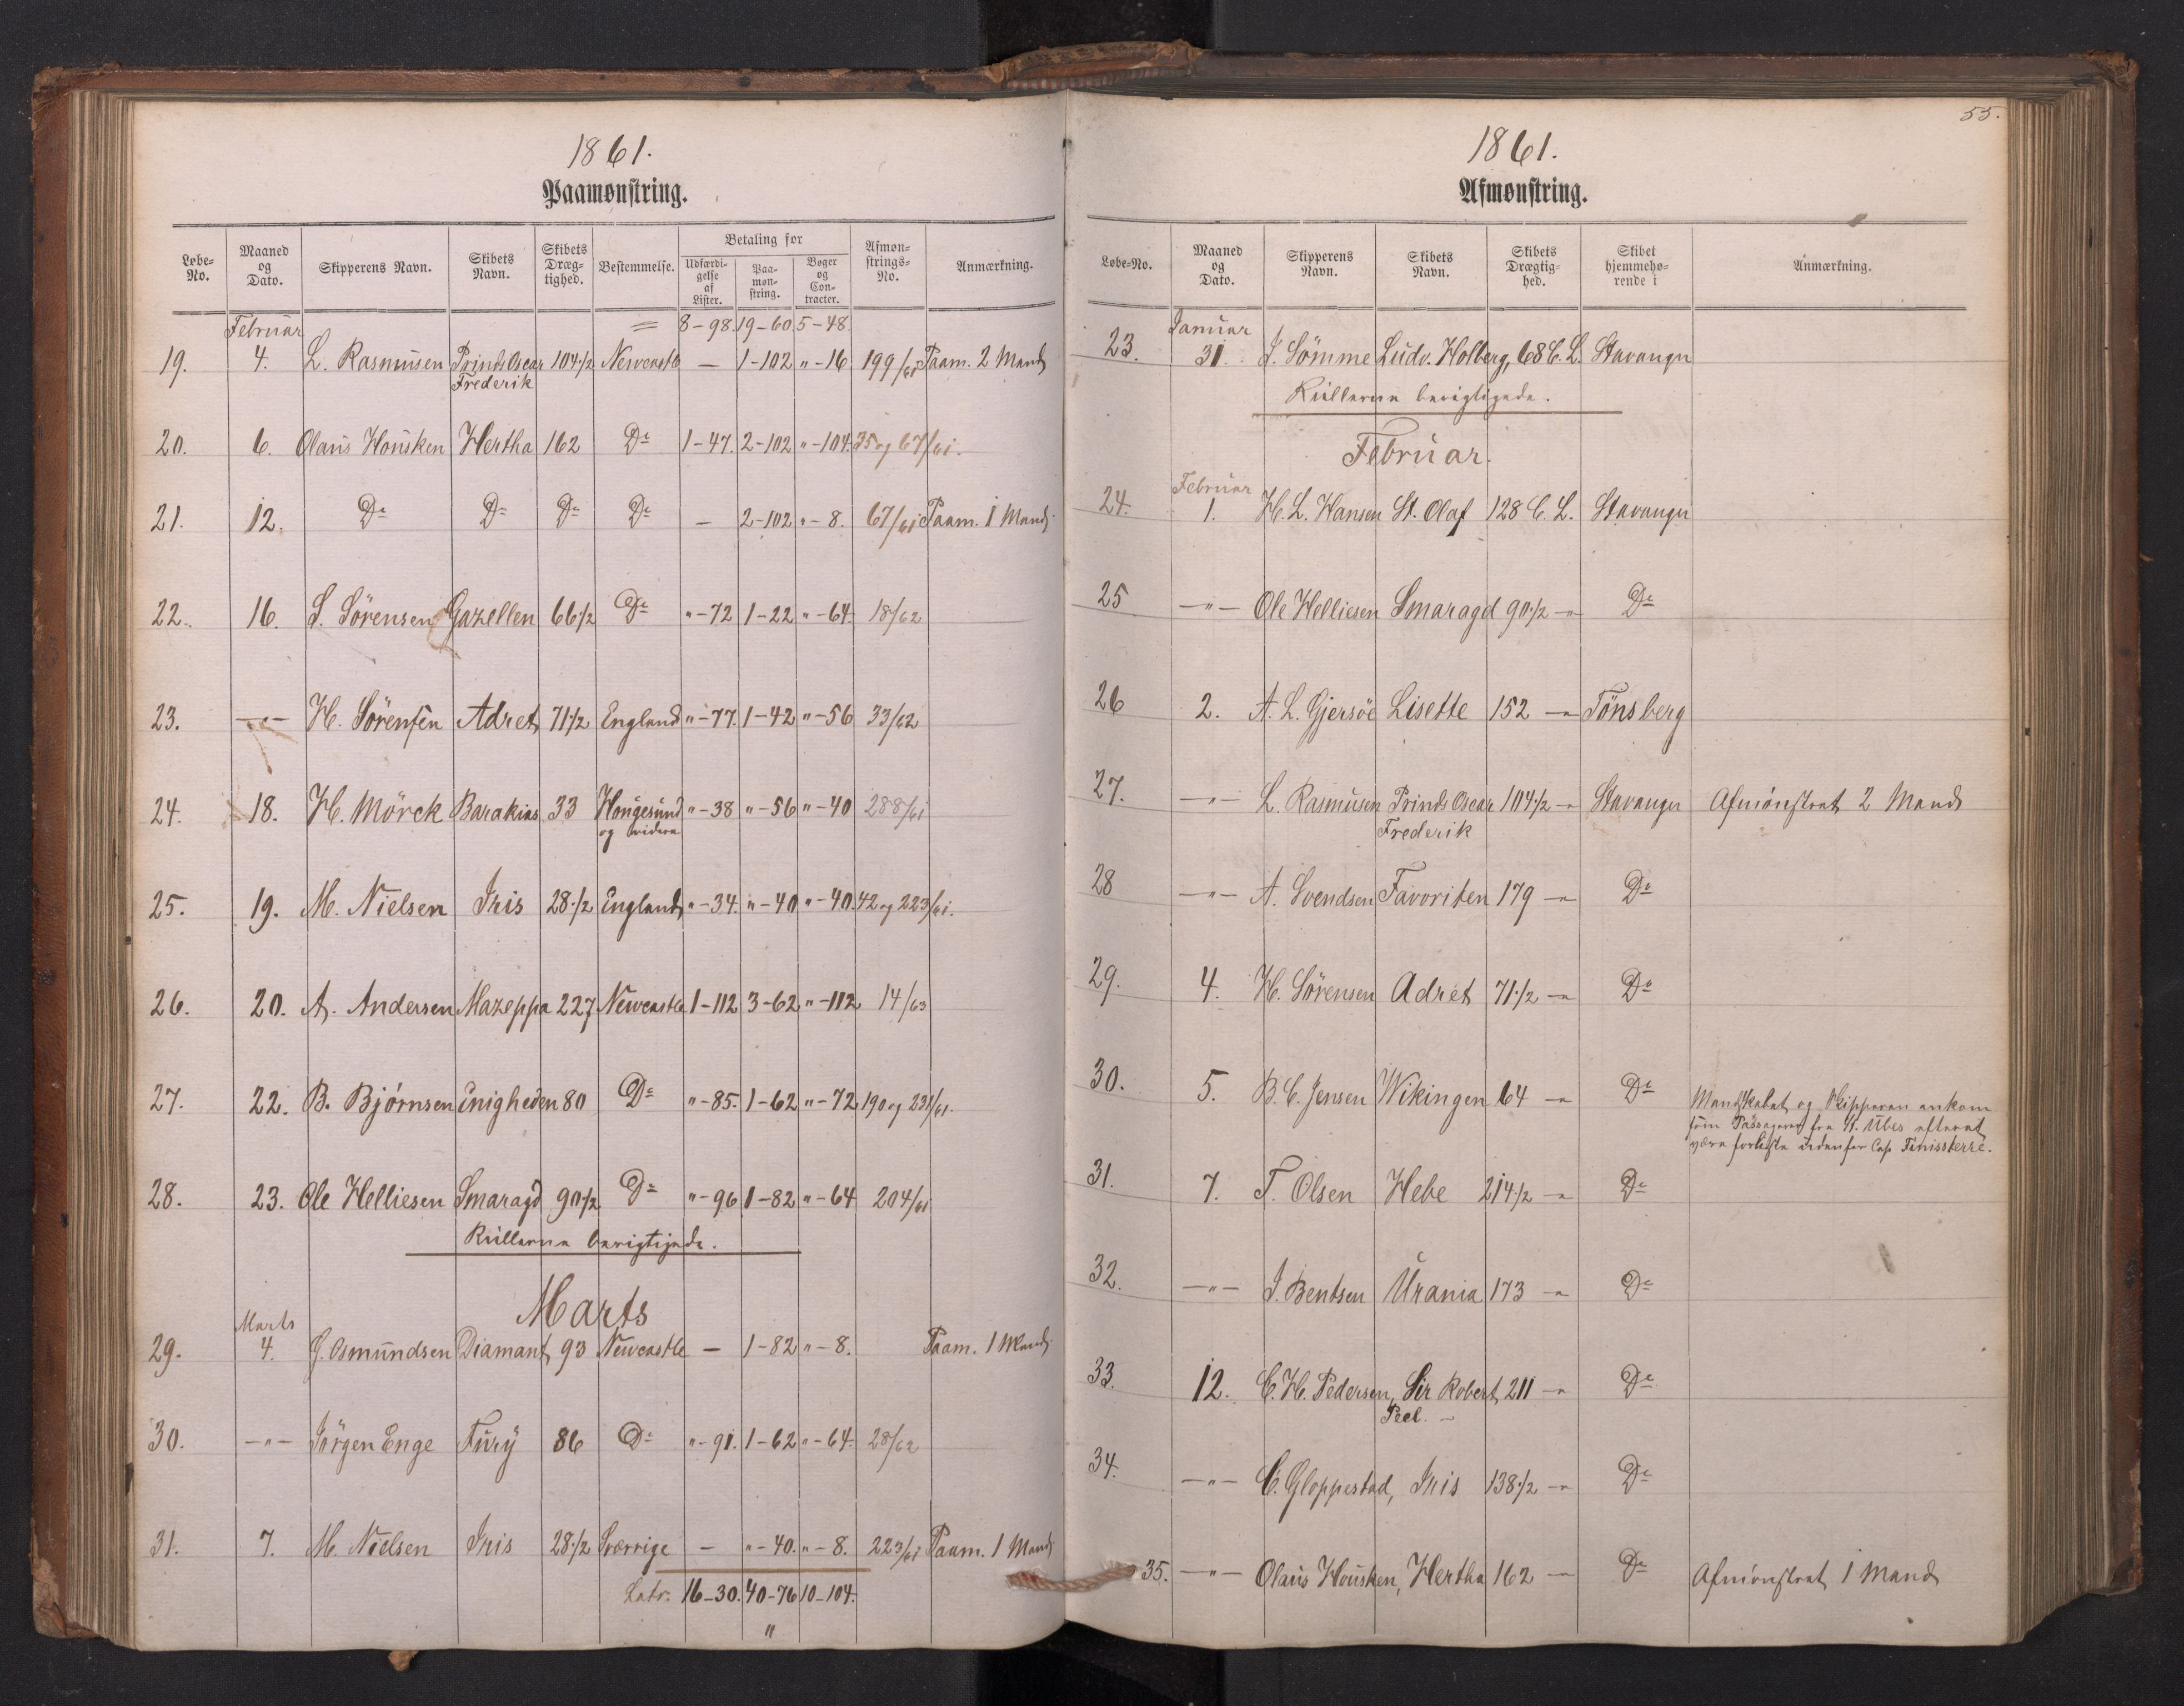 1861.
Paamønstring.
Løbe-No. Maaned og Dato. Skipperens Navn. Skibets Navn. Skibets Dræg-tighed. Bestemmelse. Betaling for Udfærdi-gelse af Lister. Paa-møn-string. Bøger og Con-tracter. Afmøn-strings-No. Anmærkning.
Februar = 8-98. 19-60. 5-48.
19. 4. L. Rasmusen Prinds Oscar Frederik 104 1/2 Newcastle — 1-102 "-16 199/61 Paam. 2 Mand
20. 6. Olaus Housken Hertha 162 Do 1-47. 2-102 "-104. 35 og 67/61.
21. 12. Do Do Do Do — 2-102 "-8. 67/61 Paam. 1 Mand
22. 16. S. Sörensen Gazellen 66 1/2 Do "-72 1-22 "-64. 18/62
23. —"— H. Sörensen Adret 71 1/2 England "-77. 1-42 "-56 33/62
24. 18. H. Mörck Barakias 33 Hougesund og videre "-38 "-56 "-40 288/61
25. 19. M. Nielsen Iris 28 1/2 England "-34. "-40 "-40. 42 og 223/61.
26. 20. A. Andersen Mazeppa 227 Newcastle 1-112 3-62 "-112 14/63
27. 22. B. Bjørnsen Enigheden 80 Do "-85. 1-62 "-72 190 og 231/61.
28. 23. Ole Helliesen Smaragd 90 1/2 Do "-96 1-82 "-64 204/61
Rullerne berigtigede.
Marts
Marts
29. 4. G. Osmundsen Diamant 93 Newcastle — 1-82 "-8. Paam. 1 Mand
30. —"— Jörgen Enge Fury 86 Do "-91. 1-62 "-64. 28/62
31. 7. M. Nielsen Iris 28 1/2 Sverrige — "-40. "-8. 223/61 Paam. 1 Mand
Latr. 16-30. 40-76 10-104.
"
55.
1861.
Afmønstring.
Løbe-No. Maaned og Dato. Skipperens Navn. Skibets Navn. Skibets Drægtig-hed. Skibet hjemmehø-rende i Anmærkning.
Januar
23. 31. J. Sömme Ludv. Holberg, 68 C. L. Stavanger
Rullerne berigtigede.
Februar.
Februar
24. 1. H. L. Hansen St. Olaf 128 C. L. Stavanger
25 —"— Ole Helliesen Smaragd 90 1/2 —"— Do
26 2. A. L. Gjersöe Lisette 152 —"— Tönsberg
27. —"— L. Rasmusen Prinds Oscar Frederik 104 1/2 —"— Stavanger Afmönstret 2 Mand
28 —"— A. Svendsen Favoriten 179 —"— Do
29. 4. H. Sörensen Adret 71 1/2 —"— Do
30. 5. B. C. Jensen Wikingen 64 —"— Do Mandskabet og Skipperen ankom
som Passagerer fra St. Ubes efterat
være forliste udenfor Cap Finissterre.
31. 7. T. Olsen Hebe 214 1/2 —"— Do
32. —"— J. Bentsen Urania 173 —"— Do
33. 12. C. H. Pedersen, Sir Robert Peel. 211 —"— Do
34. —"— C. Gloppestad, Iris 138 1/2 —"— Do
35. —"— Olaus Housken, Hertha 162 — Do Afmönstret 1 Mand